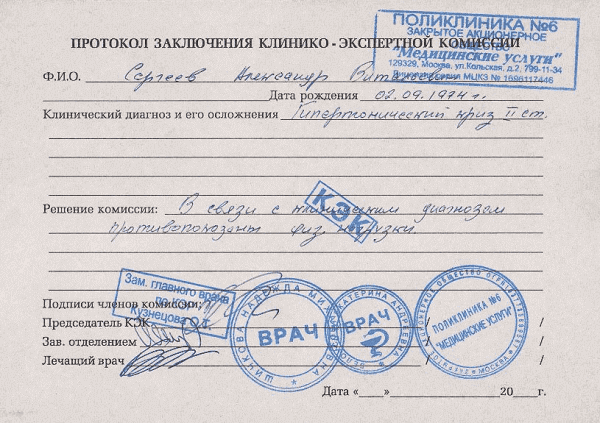 ПОЛИКЛИНИКА №6
ЗАКРЫТОЕ АКЦИОНЕРНОЕ
ОБЩЕСТВО
"Медицинские услуги"
129329, Москва, ул.Кольская, д.2, 799-11-34
МЦКЗ №
ПРОТОКОЛ ЗАКЛЮЧЕНИЯ КЛИНИКО - ЭКСПЕРТНОЙ КОМИССИИ
Ф.И.О. Сергеев Александр
Дата рождения 02.09.1974 г.
Клинический диагноз и его осложнения Гипертонический криз II ст.
КЭК
Решение комиссии: В связи с клиническим диагнозом
физ. нагрузки.
Зам. главного врача
по КЭР
Кузнецова О.Т.
Подписи членов комиссии:
Председатель КЭК / /
Зав. отделением / /
Лечащий врач / /
НАДЕЖДА
ВРАЧ
ЕКАТЕРИНА АНДРЕЕВНА
ВРАЧ
АКЦИОНЕРНОЕ ОБЩЕСТВО
ПОЛИКЛИНИКА №6
"МЕДИЦИНСКИЕ УСЛУГИ"
МОСКВА
Дата «___»___________20___г.